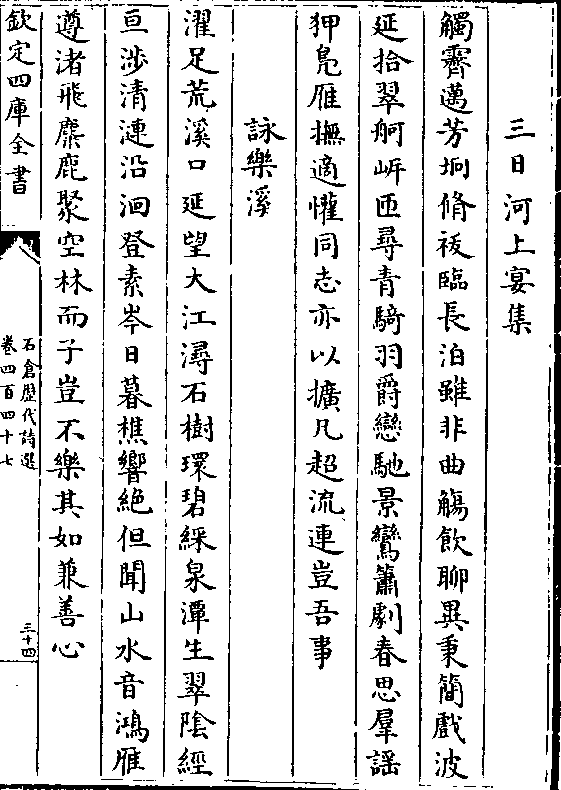 三日河上宴集
觸霽邁芳坰脩祓臨長泊雖非曲觴飲聊異秉簡戲波
延拾翠舸岓匝尋青騎羽爵戀馳景鸞簫劇春思羣謡
狎鳧雁撫適懽同志亦以擴凡超流連豈吾事
詠樂溪
濯足荒溪口延望大江潯石樹環碧綵泉潭生翠陰經
亘涉清漣沿洄登素岑日暮樵響絶但聞山水音鴻雁
遵渚飛麋鹿聚空林而子豈不樂其如兼善心
欽定四庫全書
石倉歷代詩選
卷四百四十七
三十四